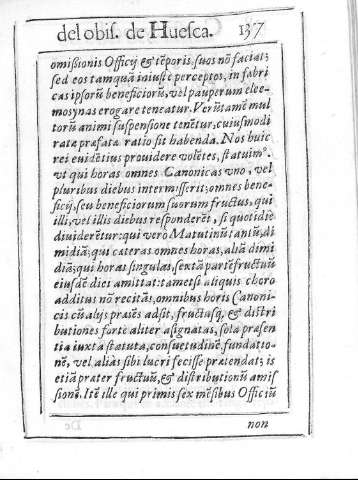 del obis. de Huesca. 137
omißionis Officij & tẽporis, suos nõ faciat;
sed eos tamquã iniuste perceptos, in fabri
cas ipsorũ beneficiorũ, vel pauperum elee-
mosynas erogare teneatur. Verũtamẽ mul
torũ animi suspensione tenẽtur, cuiusmodi
rata præfata ratio sit habenda. Nos huic
rei euidẽtius prouidere volẽtes, statuimº.
vt qui horas omnes Canonicas vno, vel
pluribus diebus intermisserit; omnes bene-
ficij, seu beneficiorum suorum fructus, qui
illi, vel illis diebus respõderẽt, si quotidie
diuiderẽtur: qui verò Matutinũ tantũ, di
midiã; qui cæteras omnes horas, aliã dimi
diã; qui horas singulas, sextã partẽ fructuũ
eiusdẽ diei amittat: tametsi aliquis choro
additus nõ recitãs, omnibus horis Canoni-
cis cũ alijs præsẽs adsit, fructusq́, & distri
butiones fortè aliter aßignatas, sola præsen
tia iuxta statuta, consuetudinẽ, fundatio-
nẽ, vel aliàs sibi lucri fecisse prætendat; is
etiã præter fructuũ, & distributionũ amis
sionẽ. Itẽ ille qui primis sex mẽsibus Officiũ
non